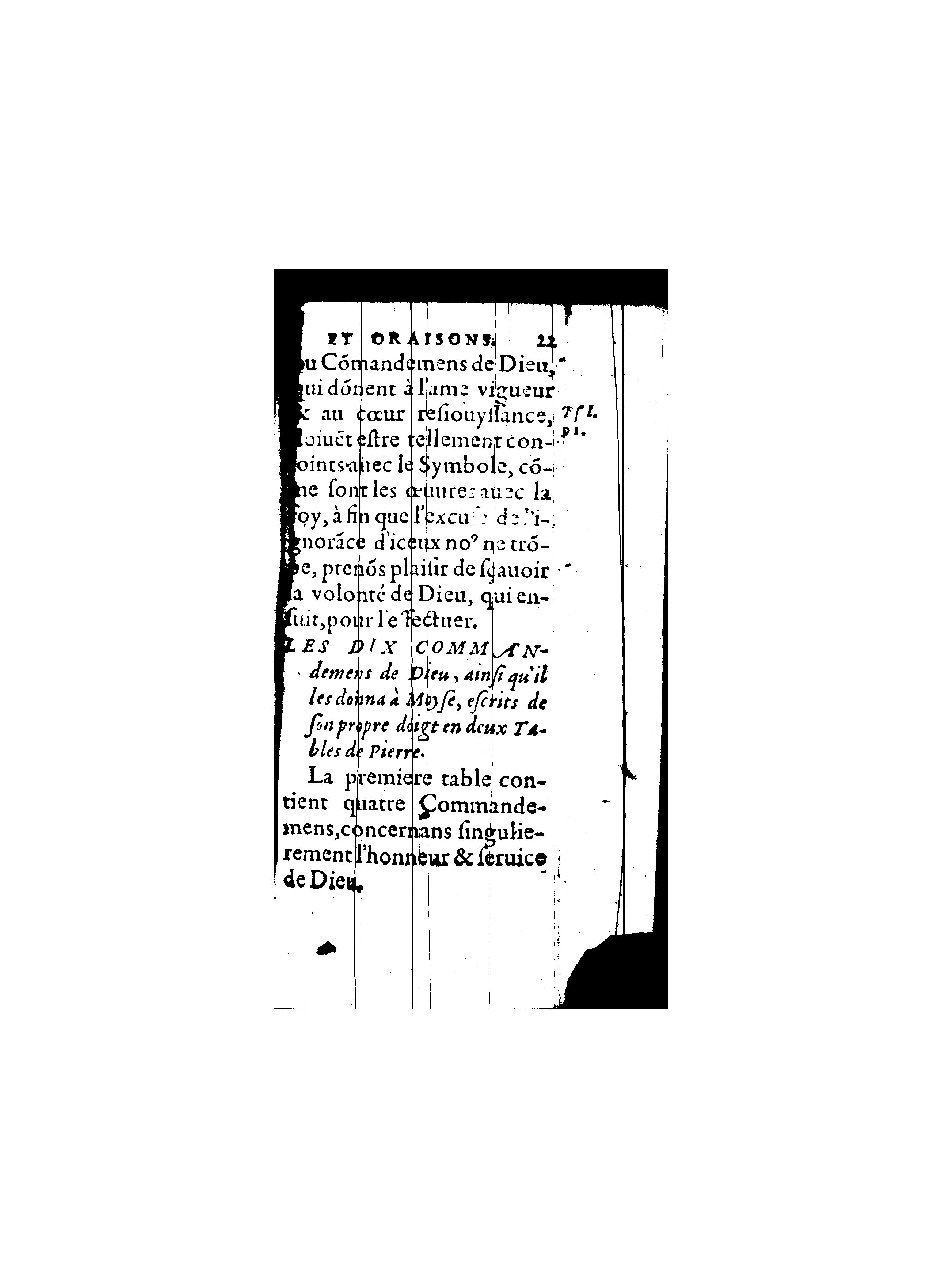 ET ORAISONS. 22
ou Cõmandemens de Dieu,
qui dõnent à l'ame vigueur
& au cœur reſiouyſſance,
doiuẽt eſtre tellement con-
ioints auec le Symbole, cõ-
me ſont les œuures auec la
foy, à fin que l'excuſe de l'i-
gnorãce d'iceux noꝰ ne trõ-
pe, prenõs plaiſir de ſçauoir
la volonté de Dieu, qui en-
ſuit, pour l'effectuer.
LES DIX COMMAN-
demens de Dieu, ainſi qu'il
les donna à Moyſe, eſcrits de
ſon propre doigt en deux Ta-
bles de Pierre.
La premiere table con-
tient quatre Commande-
mens, concernans ſingulie-
rement l'honneur & ſeruice
de Dieu.